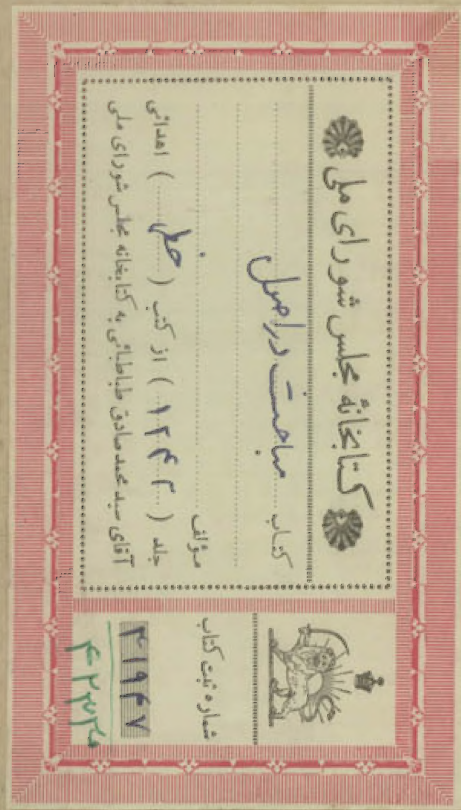 کتابخانهٔ مجلس شورای ملی
کتاب مباحث در اصول
مؤلف
جلد (۱۲۴۲) از کتب (خطی) اهدائی
آقای سید محمد صادق طباطبائی به کتابخانه مجلس شورای ملی
شماره ثبت کتاب
۳۱۹۴۷